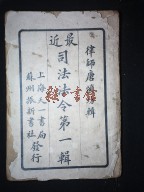 律師唐滌編輯
最近
司法法令第一輯
上海天一書局
蘇州振新書社
發行